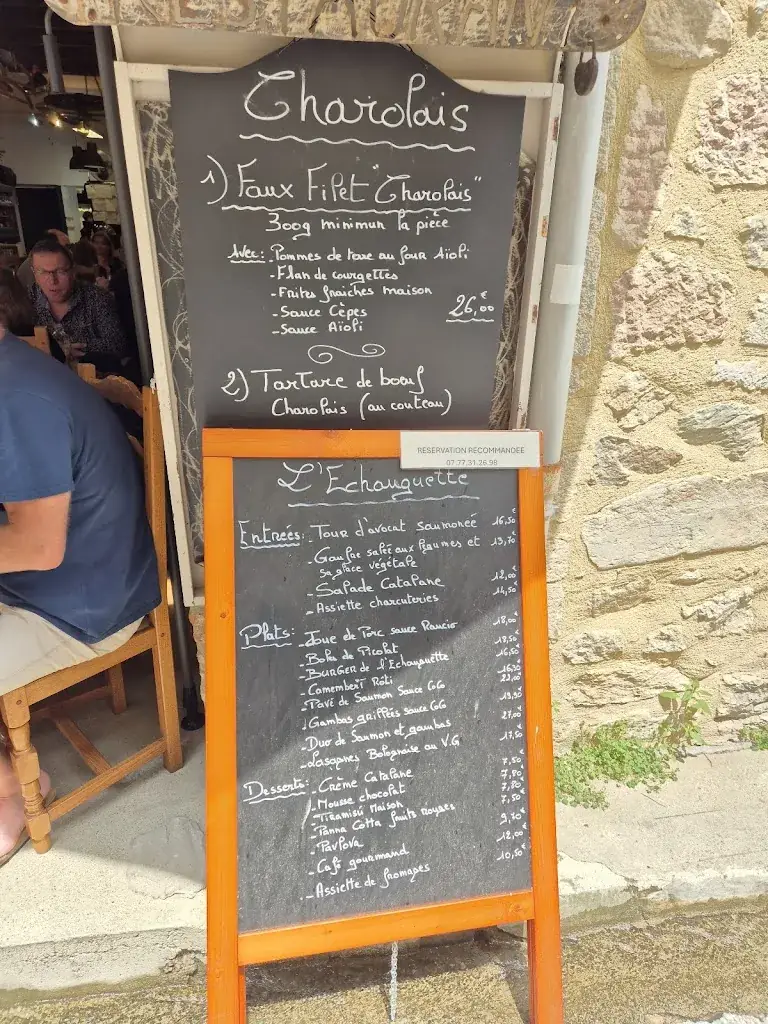 Charolais
1) Faux Filet "Charolais"
300g minimun la pièce
Avec: - Pommes de terre au four Aïoli
- Flan de courgettes
- Frites fraîches maison
- Sauce Cèpes
- Sauce Aïoli
26,00€
2) Tartare de bœuf
Charolais (au couteau)
RESERVATION RECOMMANDEE
07.77.31.26.98
L'Echauguette
Entrées: - Tour d'avocat saumonée 16,50€
- Gaufre salée aux légumes et 13,70€
sa glace végétale
- Salade Catalane 12,00€
- Assiette charcuteries 14,50€
Plats: - Joue de Porc sauce Rancio 18,00€
- Bola de Picolat 18,50€
- BURGER de l'Echauguette 16,50€
- Camembert Rôti 16,30€
- Pavé de Saumon Sauce CoCo 22,00€
- Gambas grillées sauce CoCo 19,50€
- Duo de Saumon et gambas 27,00€
- Lasagnes Bolognaise au V.G 17,50€
Desserts: - Crème Catalane 7,50€
- Mousse chocolat 7,80€
- Tiramisu Maison 7,80€
- Panna Cotta fruits rouges 7,50€
- Pavlova 9,70€
- Café gourmand 12,00€
- Assiette de fromages 10,50€